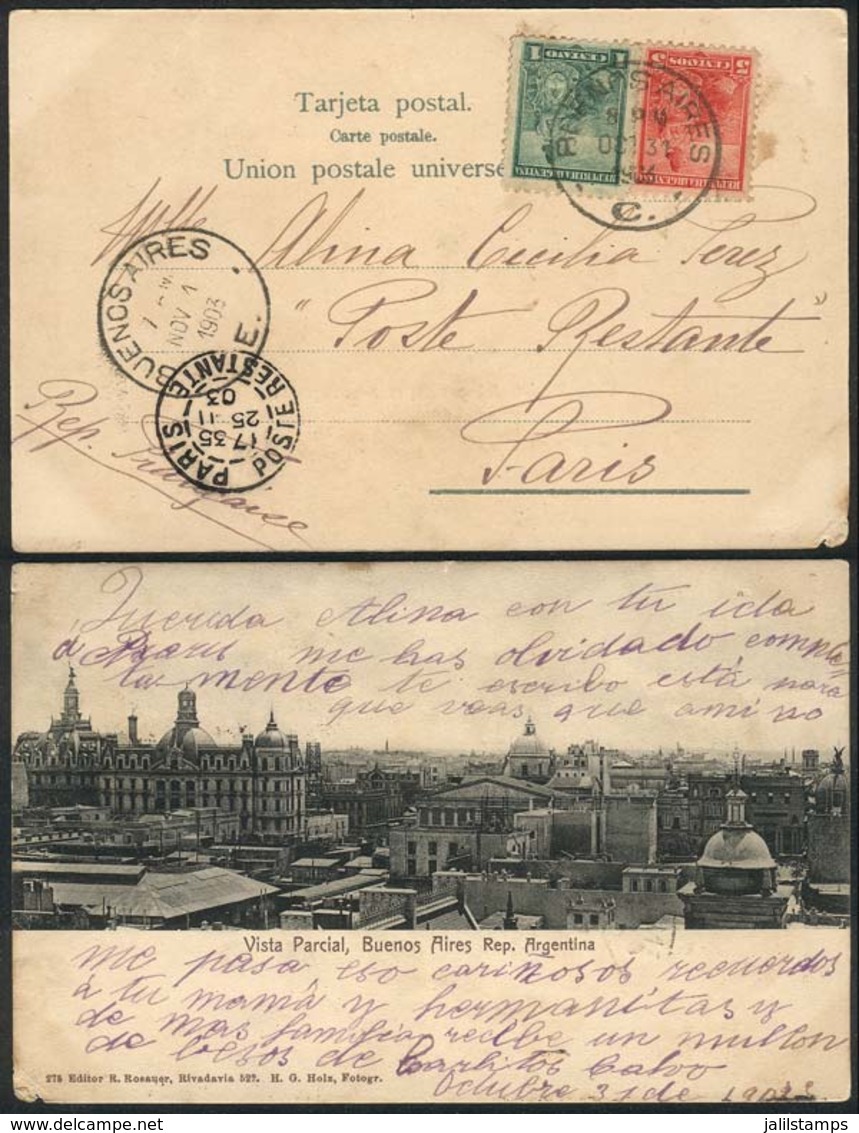 1 CENTAVO
REPUBLICA ARGENTINA
5 CENTAVOS 5
REPUBLICA ARGENTINA
BUENOS AIRES
OCT 31
C.
Tarjeta postal.
Carte postale.
Union postale universe
Mlle Alina Cecilia Perez
"Poste Restante"
Paris
Rep. Française
BUENOS AIRES
NOV 1
1903
E.
PARIS
17 35
25 - 11
03
POSTE RESTANTE
Querida Alina con tu ida
a Paris me has olvidado comple
ta mente te escribo está para
que veas que a mi no
Vista Parcial, Buenos Aires Rep. Argentina
me pasa eso cariñosos recuerdos
a tu mamá y hermanitas y
de mas familia recibe un millon
de besos de Carlitos Calvo
Octubre 31 de 1903
275 Editor R. Rosauer, Rivadavia 527. H. G. Holz, Fotogr.
jalilstamps